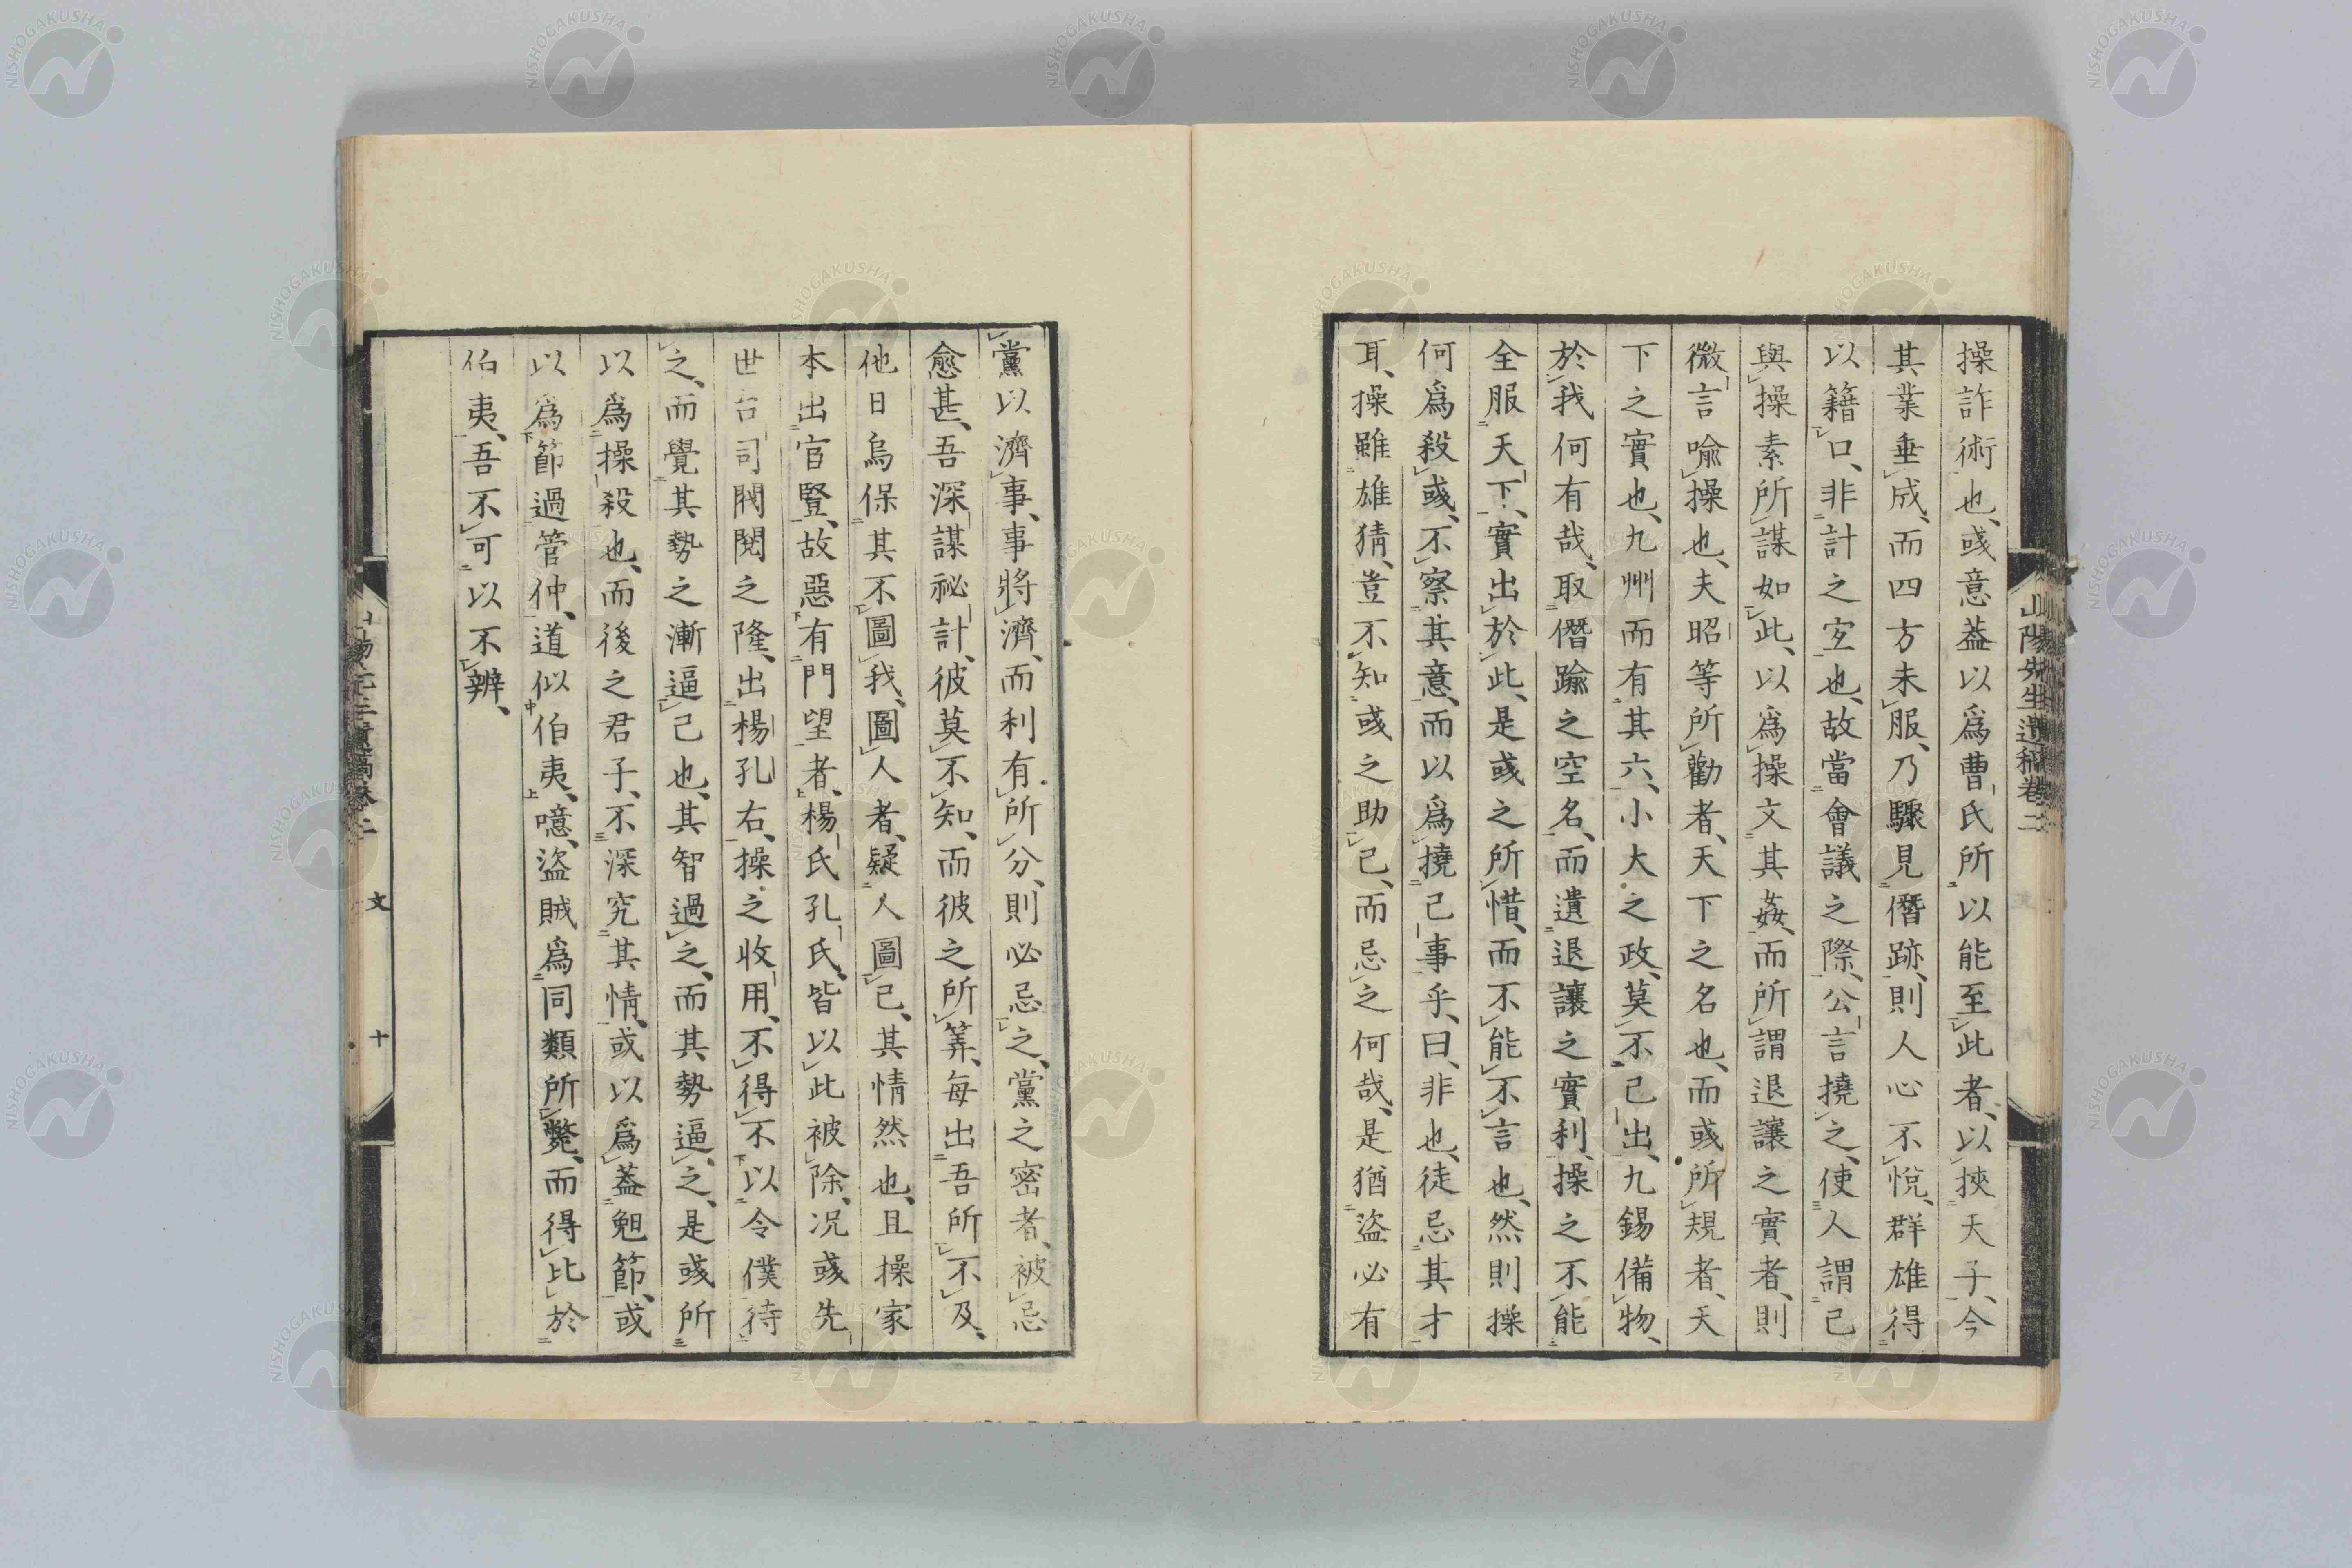 山陽先生遺稿卷二
操詐術也、彧意葢以爲曹氏所以能至此者、以挾天子、今
其業垂成、而四方未服、乃驟見僭跡、則人心不悅、群雄得
以籍口、非計之宜也、故當會議之際、公言撓之、使人謂己
與操素所謀如此、以爲操文其姦、而所謂退讓之實者、則
微言喩操也、夫昭等所勸者、天下之名也、而彧所規者、天
下之實也、九州而有其六、小大之政、莫不己出、九錫備物、
於我何有哉、取僭踰之空名、而遺退讓之實利、操之不能
全服天下、實出於此、是彧之所惜、而不能不言也、然則操
何爲殺彧、不察其意、而以爲撓己事乎、曰、非也、徒忌其才
耳、操雖雄猜、豈不知彧之助己、而忌之何哉、是猶盜必有
黨以濟事、事將濟、而利有所分、則必忌之、黨之密者、被忌
愈甚、吾深謀祕計、彼莫不知、而彼之所筭、每出吾所不及、
他日烏保其不圖我、圖人者、疑人圖己、其情然也、且操家
本出宦豎、故惡有門望者、楊氏孔氏、皆以此被除、况彧先
世台司閥閱之隆、出楊孔右、操之收用、不得不以令僕待
之、而覺其勢之漸逼己也、其智過之、而其勢逼之、是彧所
以爲操殺也、而後之君子、不深究其情、或以爲葢勉節、或
以爲節過管仲、道似伯夷、噫、盜賊爲同類所斃、而得比於
伯夷、吾不可以不辨、
文
十
NISHOGAKUSHA